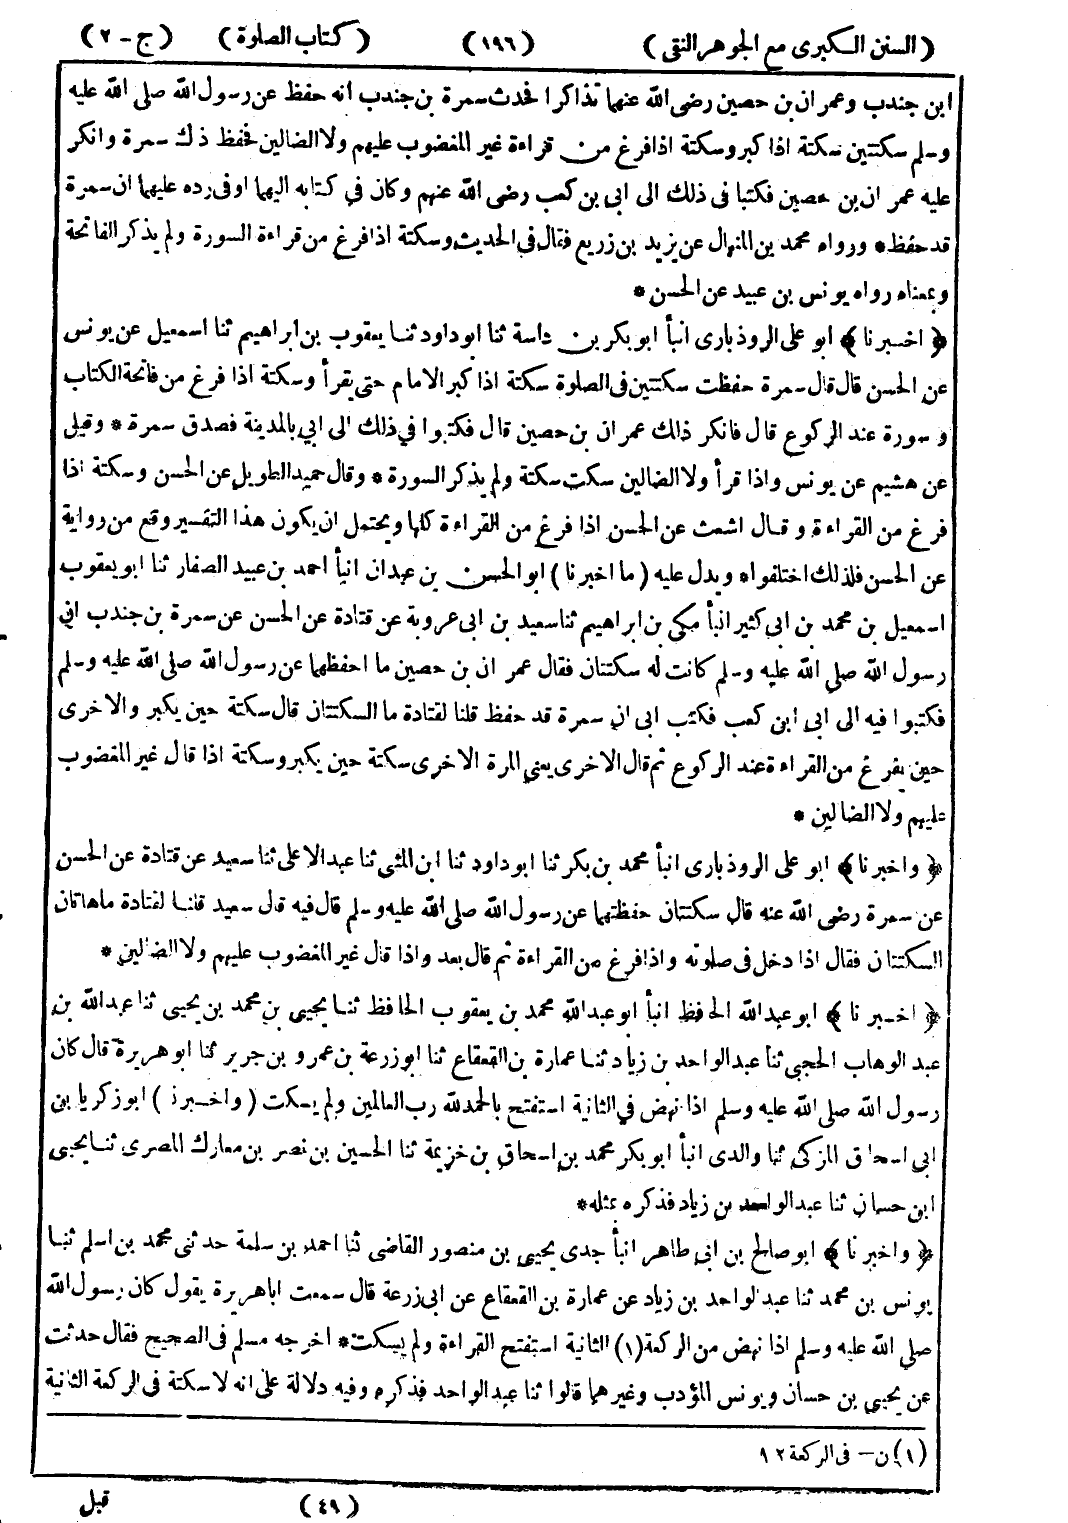 (السنن الكبرى مع الجوهر النقى) (١٩٦) (كتاب الصلوة) (ج - ٢)
ابن جندب وعمران بن حصين رضى الله عنهما تذاكرا فحدث سمرة بن جندب أنه حفظ عن رسول الله صلى الله عليه
وسلم سكتتين سكتة اذا كبر وسكتة اذا فرغ من قراءة غير المغضوب عليهم ولا الضالين فحفظ ذلك سمرة وانكر
عليه عمران بن حصين فكتبا فى ذلك الى ابى بن كعب رضى الله عنهم وكان في كتابه اليهما اوفى رده عليهما ان سمرة
قد حفظ * ورواه محمد بن المنهال عن يزيد بن زريع فقال فى الحديث وسكتة اذا فرغ من قراءة السورة ولم يذكر الفاتحة
وبمعناه رواه يونس بن عبيد عن الحسن *
﴿ اخبرنا ﴾ ابو على الروذبارى انبأ ابو بكر بن داسة ثنا ابو داود ثنا يعقوب بن ابراهيم ثنا اسمعيل عن يونس
عن الحسن قال قال سمرة حفظت سكتتين فى الصلوة سكتة اذا كبر الامام حتى يقرأ وسكتة اذا فرغ من فاتحة الكتاب
وسورة عند الركوع قال فانكر ذلك عمران بن حصين قال فكتبوا في ذلك الى ابي بالمدينة فصدق سمرة * وقيل
عن هشيم عن يونس واذا قرأ ولا الضالين سكت سكتة ولم يذكر السورة * وقال حميد الطويل عن الحسن وسكتة اذا
فرغ من القراءة وقال اشعث عن الحسن اذا فرغ من القراءة كلها ويحتمل ان يكون هذا التفسير وقع من رواية
عن الحسن فلذلك اختلفوا * ويدل عليه (ما اخبرنا) ابو الحسن بن عبدان انبأ احمد بن عبيد الصفار ثنا ابو يعقوب
اسمعيل بن محمد بن ابي كثير انبأ مكى بن ابراهيم ثنا سعيد بن ابى عروبة عن قتادة عن الحسن عن سمرة بن جندب ان
رسول الله صلى الله عليه وسلم كانت له سكتتان فقال عمران بن حصين ما احفظهما عن رسول الله صلى الله عليه وسلم
فكتبوا فيه الى ابى ابن كعب فكتب ابى ان سمرة قد حفظ قلنا لقتادة ما السكتتان قال سكتة حين يكبر والاخرى
حين يفرغ من القراءة عند الركوع ثم قال الاخرى يعني المرة الاخرى سكتة حين يكبر وسكتة اذا قال غير المغضوب
عليهم ولا الضالين *
﴿ واخبرنا ﴾ ابو على الروذبارى انبأ محمد بن بكر ثنا ابو داود ثنا ابن المثنى ثنا عبد الاعلى ثنا سعيد عن قتادة عن الحسن
عن سمرة رضى الله عنه قال سكتتان حفظتهما عن رسول الله صلى الله عليه وسلم قال فيه قال سعيد قلنا لقتادة ماهاتان
السكتتان فقال اذا دخل فى صلوته واذا فرغ من القراءة ثم قال بعد واذا قال غير المغضوب عليهم ولا الضالين *
﴿ اخبرنا ﴾ ابو عبد الله الحافظ انبأ ابو عبد الله محمد بن يعقوب الحافظ ثنا يحيى بن محمد بن يحيى ثنا عبد الله بن
عبد الوهاب الحجبى ثنا عبد الواحد بن زياد ثنا عمارة بن القعقاع ثنا ابو زرعة بن عمرو بن جرير ثنا ابو هريرة قال كان
رسول الله صلى الله عليه وسلم اذا نهض في الثانية استفتح بالحمد لله رب العالمين ولم يسكت (واخبرنا) ابو زكريا بن
ابى اسحاق المزكى ثنا والدى انبأ ابو بكر محمد بن اسحاق بن خزيمة ثنا الحسين بن نصر بن معارك المصرى ثنا يحيى
ابن حسان ثنا عبد الواحد بن زياد فذكره بمثله *
﴿ واخبرنا ﴾ ابو صالح بن ابى طاهر انبأ جدى يحيى بن منصور القاضى ثنا احمد بن سلمة حدثنى محمد بن اسلم ثنا
يونس بن محمد ثنا عبد الواحد بن زياد عن عمارة بن القعقاع عن ابى زرعة قال سمعت اباهريرة يقول كان رسول الله
صلى الله عليه وسلم اذا نهض من الركعة (١) الثانية استفتح القراءة ولم يسكت * اخرجه مسلم فى الصحيح فقال حدثت
عن يحيى بن حسان ويونس المؤدب وغيرهما قالوا ثنا عبد الواحد فذكره وفيه دلالة على انه لا سكتة فى الركعة الثانية
(١) ن - فى الركعة ١٢
(٤٩) قبل